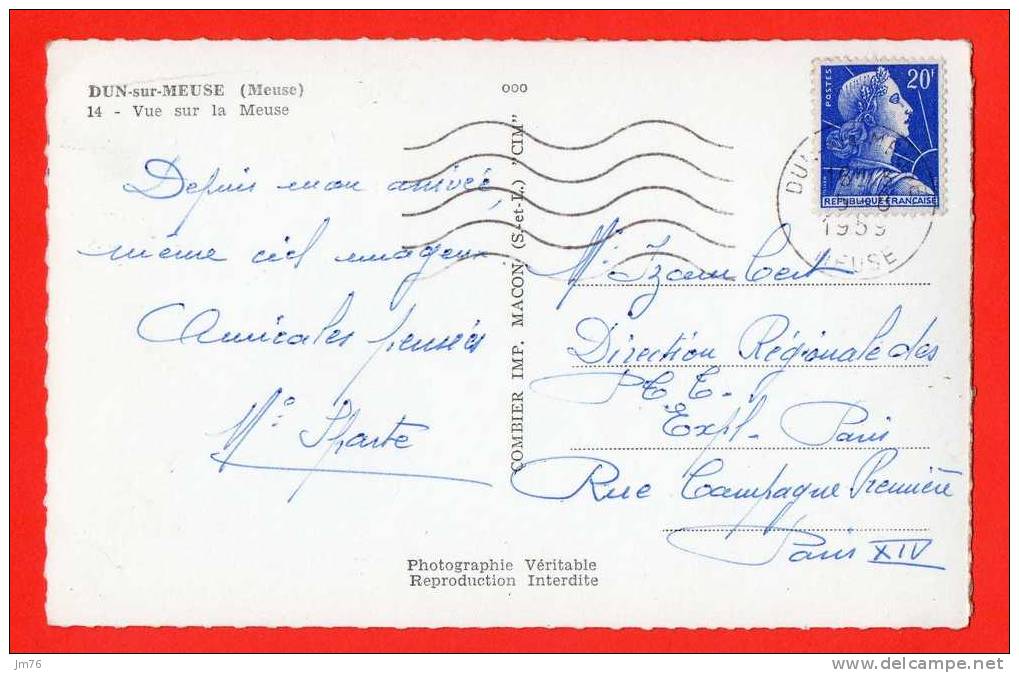 DUN-sur-MEUSE (Meuse)
14 - Vue sur la Meuse
ooo
POSTES
20F
REPUBLIQUE FRANÇAISE
DUN
1959
MEUSE
Depuis mon arrivée,
même ciel nuageux
Amicales pensées
COMBIER IMP. MACON (S.-et-L.) "CIM"
Izambert
Direction Régionale des
Expl. Paris
Rue Campagne Première
Paris XIV
Photographie Véritable
Reproduction Interdite
jm76
www.delcampe.net